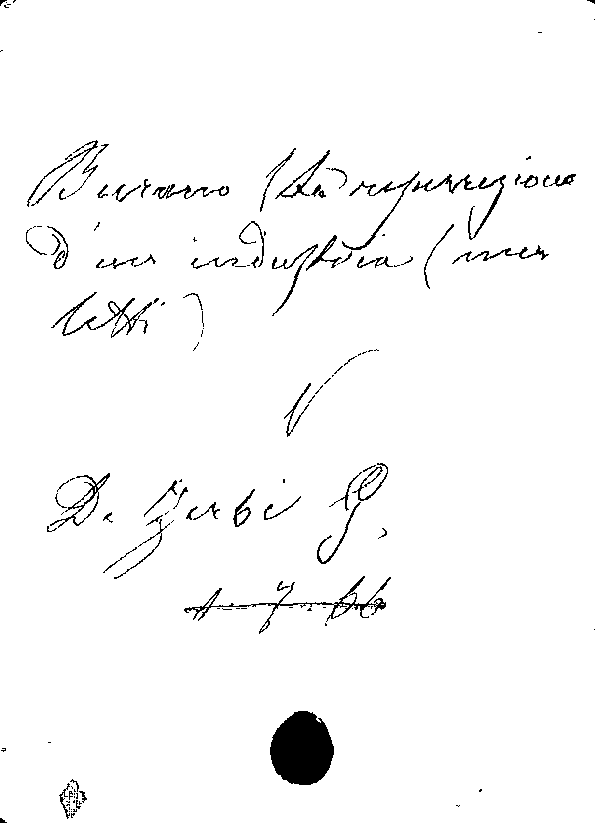 Burano (La resurrezione
d'una industria (mer
letti)
V
De Zerbi G.
1. 7. 66